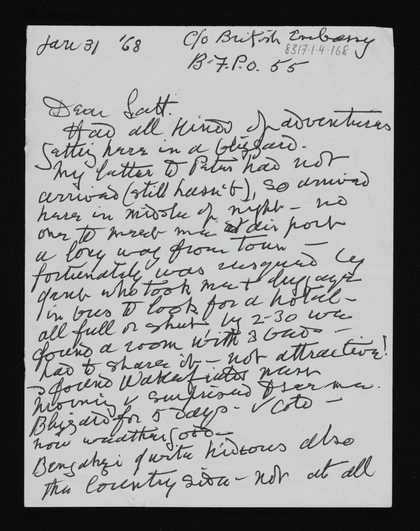 Jan 31 '68
C/o British Embassy
8317.1.4.168
B.F.P.O. 55
Dear Satt.
Had all kinds of adventures
getting here in a blizzard.
My letter to Peter had not
arrived (still hasn't), so arrived
here in middle of night - no
one to meet me at air port
a long way from town -
fortunately was rescued by
who took me & luggage
in bus to look for a hotel -
all full or shut by 2-30 we
found a room with 3 beds -
had to share it - not attractive!
I found Wakefields next
morning & surprised
Blizzard for 5 days - v cold -
now weather good -
Benghazi quite hideous also
the country side - not at all